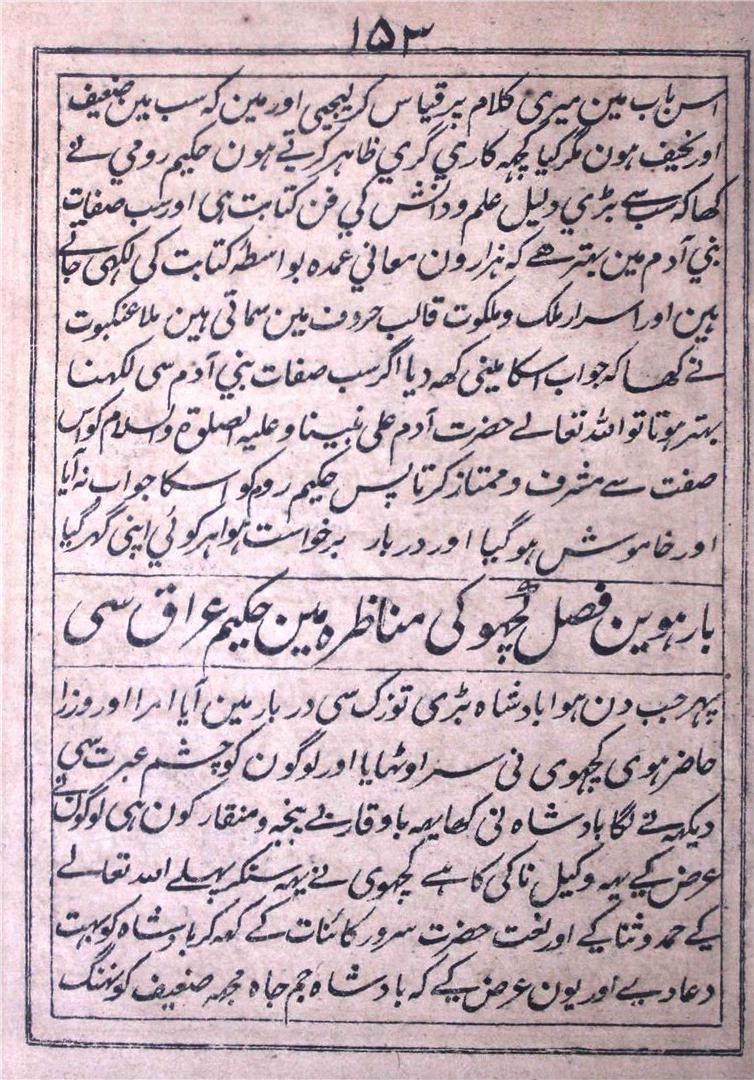 ۱۵۳
اس باب مین میری کلام پر قیاس کر لیجیی اور مین که سب مین ضعیف
اور نحیف ہون مگر کیا کچہہ کاری گری ظاہر کرتے ہون حکیم رومی نے
کھا که سب سے بڑی دلیل علم و دانش کی فن کتابت ہی اور سب صفات
بنی آدم مین بہتر ھے که ہزارون معانی عمدہ بواسطه کتابت کی لکھی جاتے
ہین اور اسرار ملک و ملکوت قالب حروف مین سماتی ہین ملا عنکبوت
نے کھا که جواب اسکا مینی کهه دیا اگر سب صفات بنی آدم سی لکھنا
بہتر ہوتا تو الله تعالے حضرت آدم علی نبینا و علیه الصلوۃ والسلام کو اس
صفت سے مشرف و ممتاز کرتا پس حکیم روم کو اسکا جواب نه آیا
اور خاموش ہو گیا اور دربار برخواست ہوا ہر کوئی اپنی گہر گیا
بارہوین فصل کچھو کی مناظرہ مین حکیم عراق سی
پہر جب دن ہوا بادشاہ بڑی توزک سی دربار مین آیا امرا اور وزرا
حاضر ہوی کچھوی نی سر اوٹھایا اور لوگون کو چشم عبرت سی
دیکہنے لگا بادشاہ نی کھا یہه با وقار بے پنجه و منقار کون ہی لوگون نے
عرض کیے یہه وکیل ناکی کا ہے کچھوی نے یہه سنکر پہلے الله تعالے
کے حمد و ثنا کیے اور نعت حضرت سرور کائنات کے کہه کر بادشاہ کو بہت
دعا دیے اور یون عرض کیے که بادشاہ جم جاہ مجھه ضعیف کو نہنگ